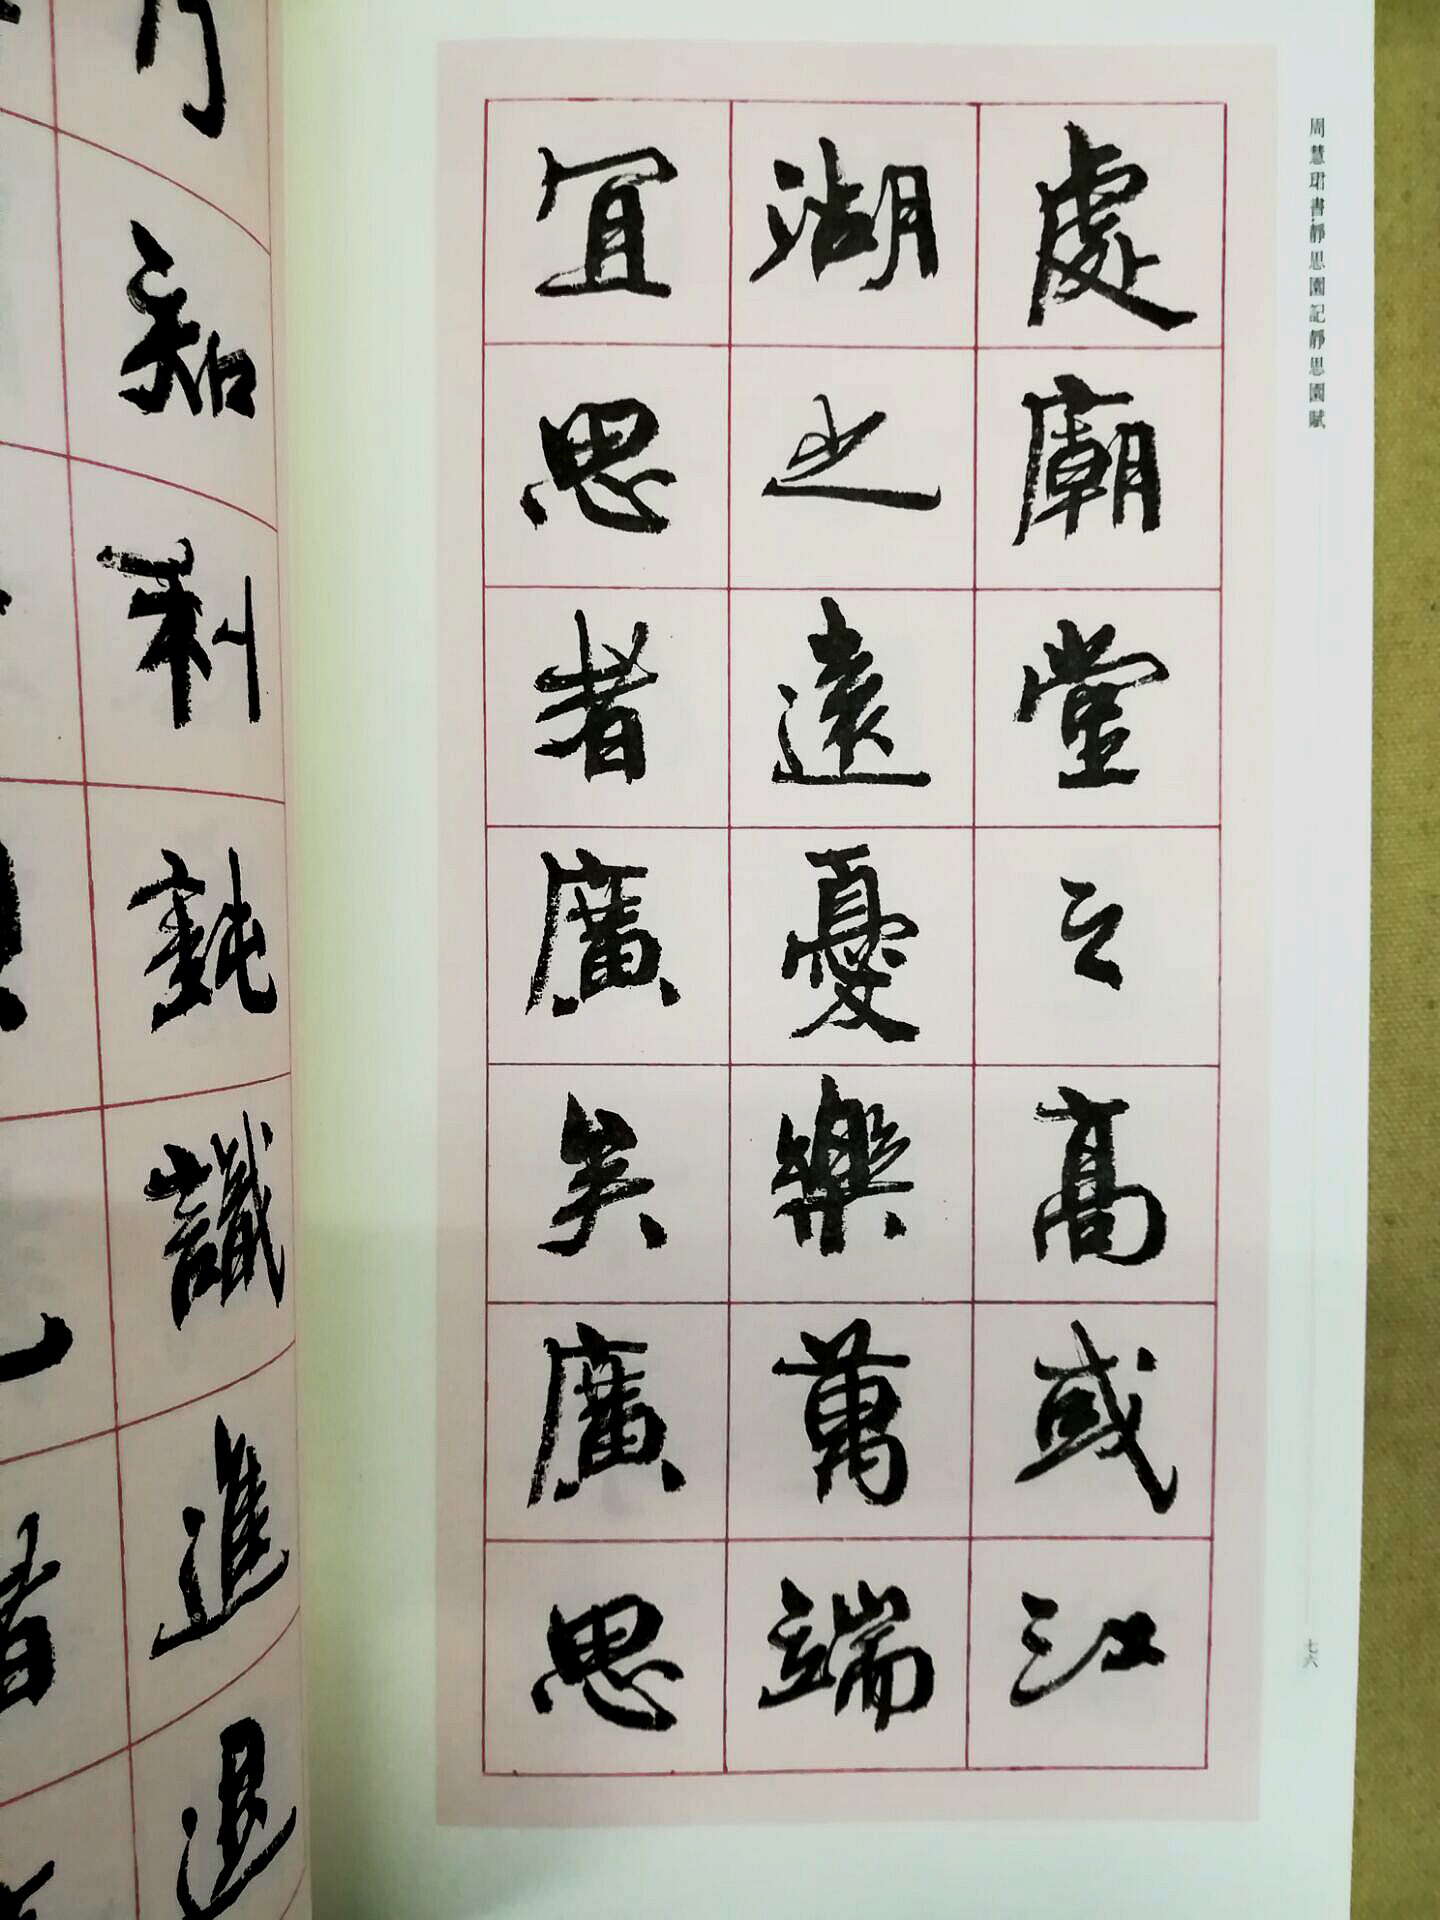 周慧珺書·靜思園記靜思園賦
處廟堂之高或江
湖之遠憂樂萬端
宜思者廣矣廣思
七六
知利鈍識進退